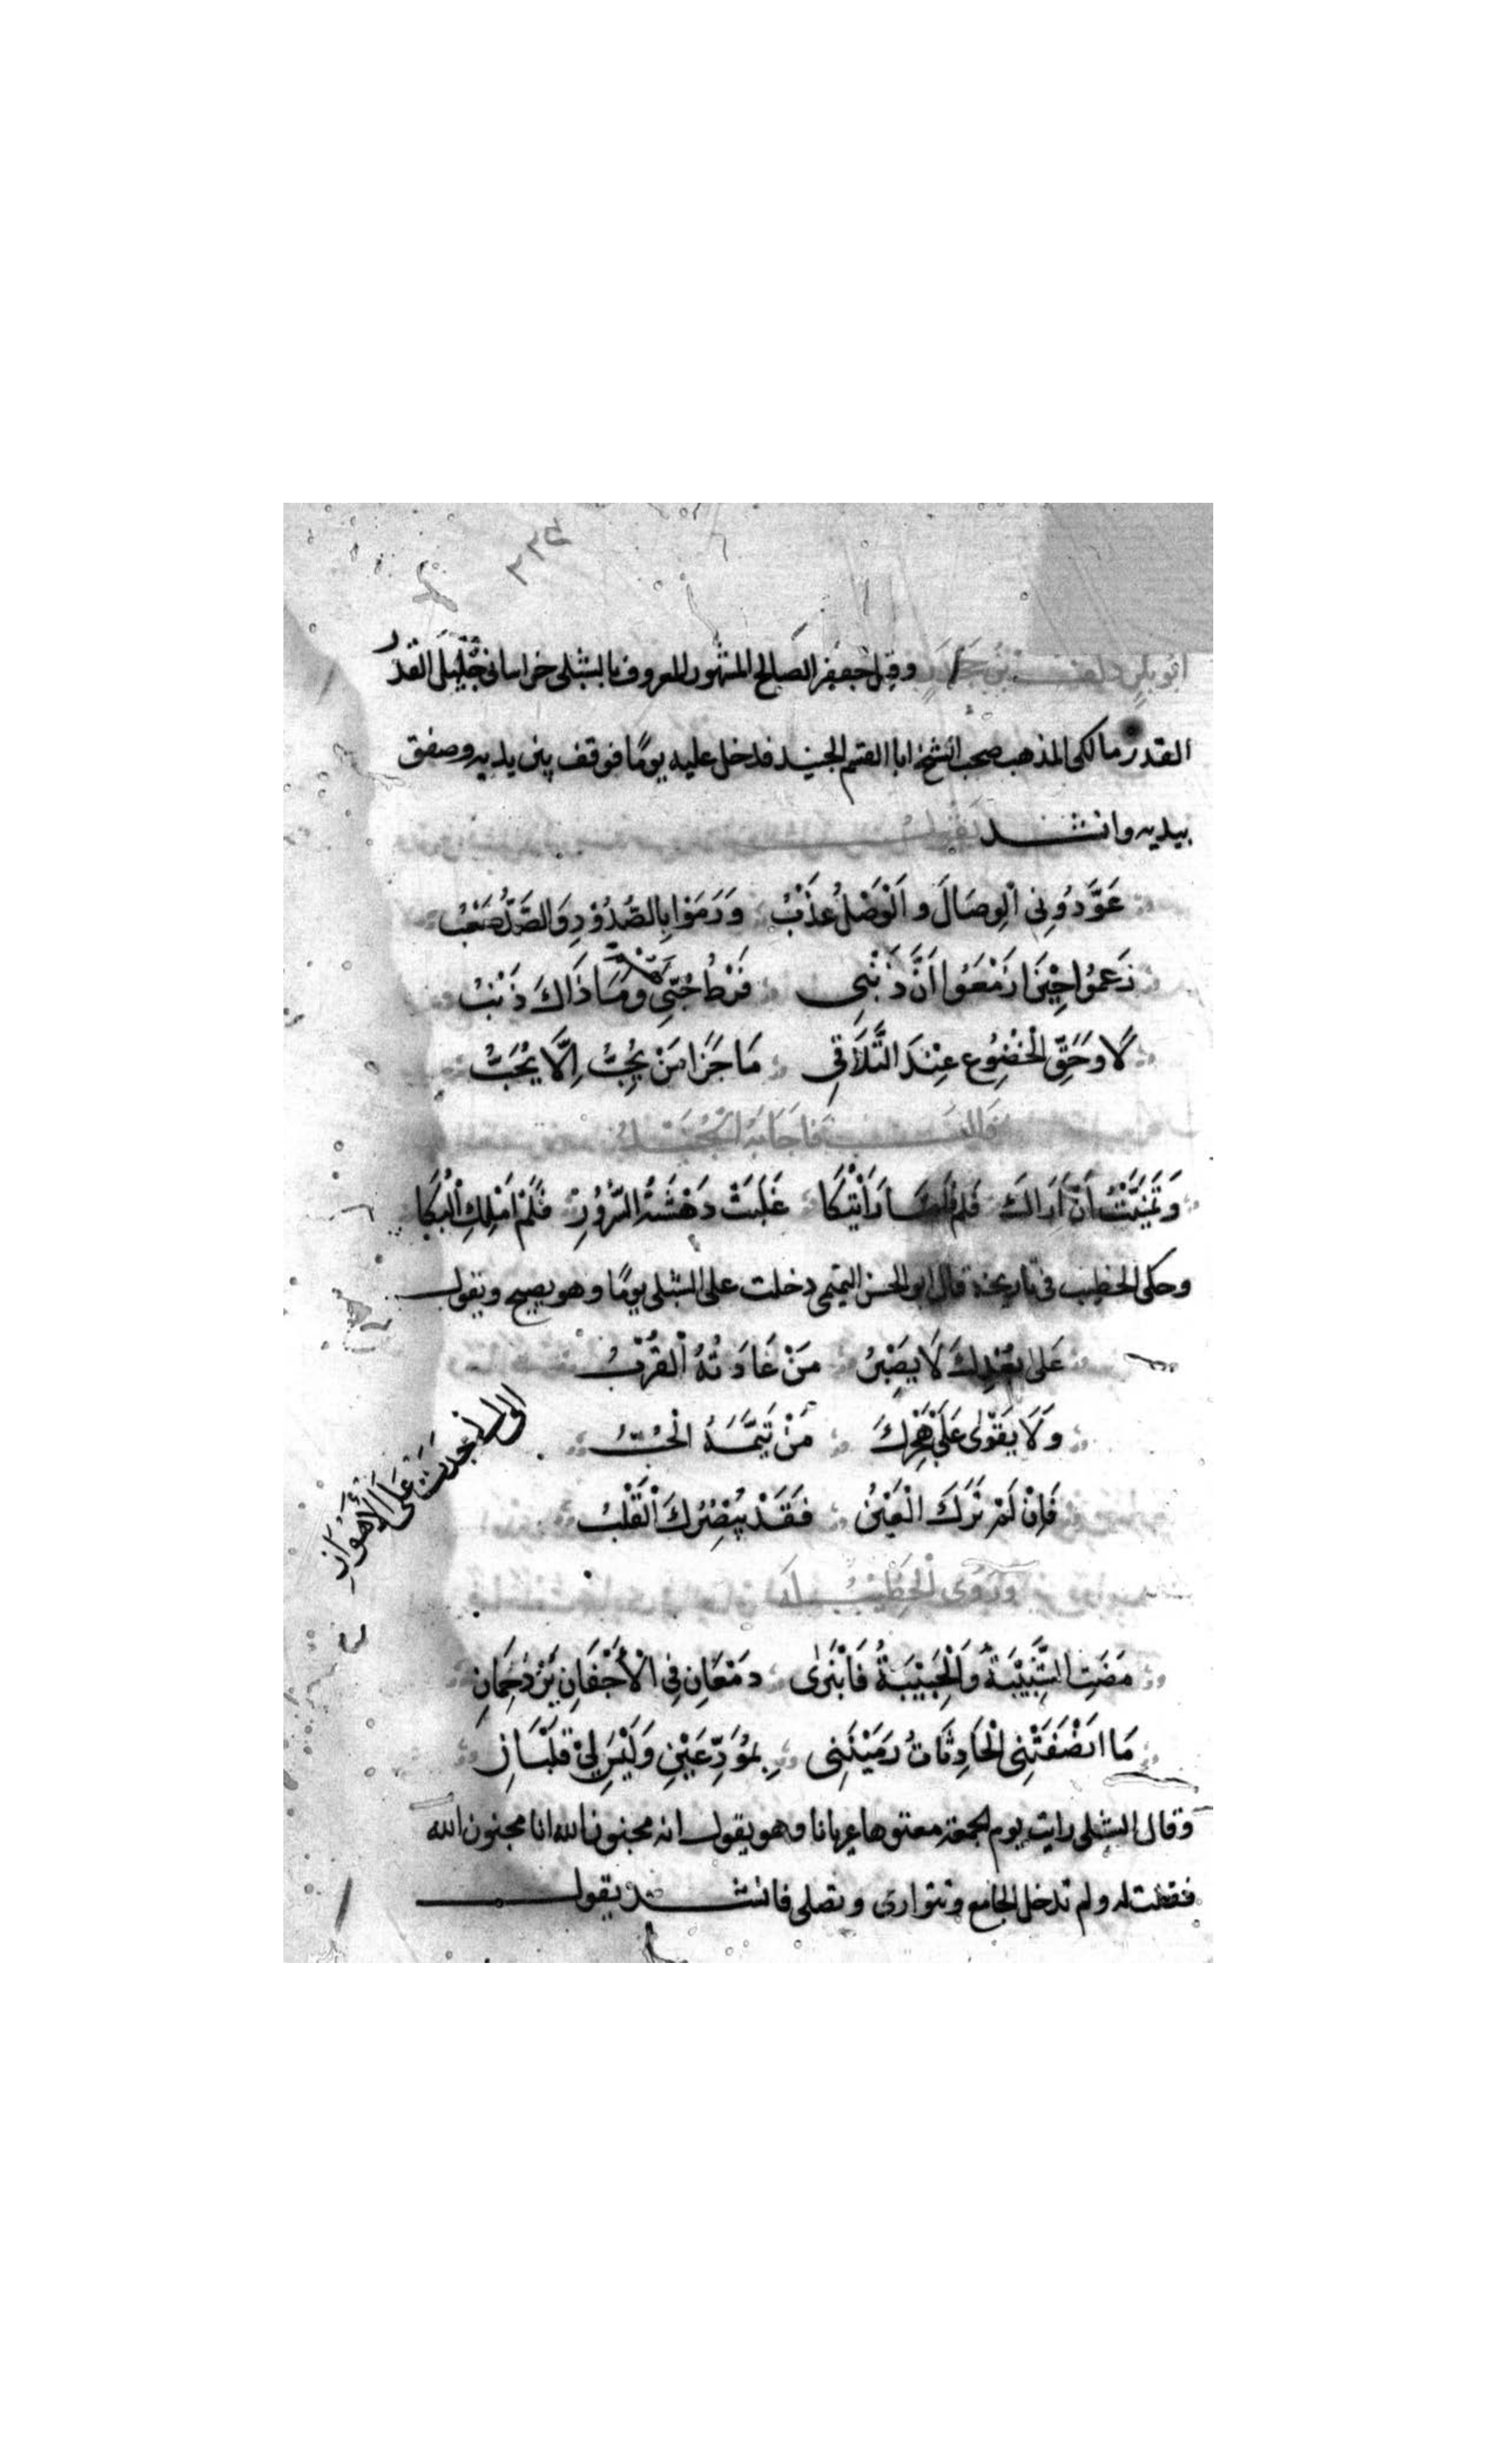 ٣٣٥
ابو بكر دلف بن جحدر وقيل جعفر الصالح المشهور المعروف بالشبلى خراسانى جليل القدر
القدر مالكى المذهب صحب الشيخ ابا القسم الجنيد فدخل عليه يومًا فوقف بين يديه وصفق
بيديه وانشد يقول
عَوَّدُونِى الْوِصَالَ وَالْوَصْلُ عَذْبُ وَرَمَوْا بِالصُّدُوْدِ وَالصَّدُّ صَعْبُ
زَعَمُوا حِيْنَ ازمَعُوا اَنَّ ذَنْبِى فَرْطُ حُبِّى وَمَا ذَاكَ ذَنْبُ
لَا وحَقِّ الْخُضُوعِ عِنْدَ التَّلَاقِى مَا جَزَا مَنْ يُحِبُّ اِلَّا يُحَبُّ
قال فَاجَابَهُ الْجُنَيْدُ
وَتَمَنَّيْتُ اَنْ اَرَاكَ فَلَمَّا رَاَيْتُكَا غَلَبَتْ دَهْشَةُ السُّرُوْرِ فَلَمْ اَمْلِكِ الْبُكَا
وحكى الخطيب فى تاريخه قال ابو الحسن التميمى دخلت على الشبلى يومًا وهو يصيح ويقول
عَلىٰ بُعْدِكَ لَا يَصْبِرُ مَنْ عَادَتُهُ الْقُرْبُ
وَلَا يَقْوٰى عَلىٰ هَجْرِكَ مَنْ تَيَّمَهُ الْحُبُّ
فَاِنْ لَمْ تَرَكَ الْعَيْنُ فَقَدْ يُبْصِرُكَ الْقَلْبُ
وَرَوٰى الْخَطِيْبُ لَهُ
مَضَتِ الشَّبِيْبَةُ وَالْحَبِيْبَةُ فَانْبَرٰى دمْعَانِ فِى الْأَجْفَانِ يَزْدَحِمَانِ
مَا انْصَفَتْنِى الْحَادِثَاتُ رَمَيْنَنِى بِمُوَدِّعَيْنِ وَلَيْسَ لِىْ قَلْبَانِ
وقال الشبلى رايت يوم الجمعة معتوها عريانا وهو يقول انه مجنون الله انا مجنون الله
فقلت له ولم تدخل الجامع وتتوارى وتصلى فانشد يقول